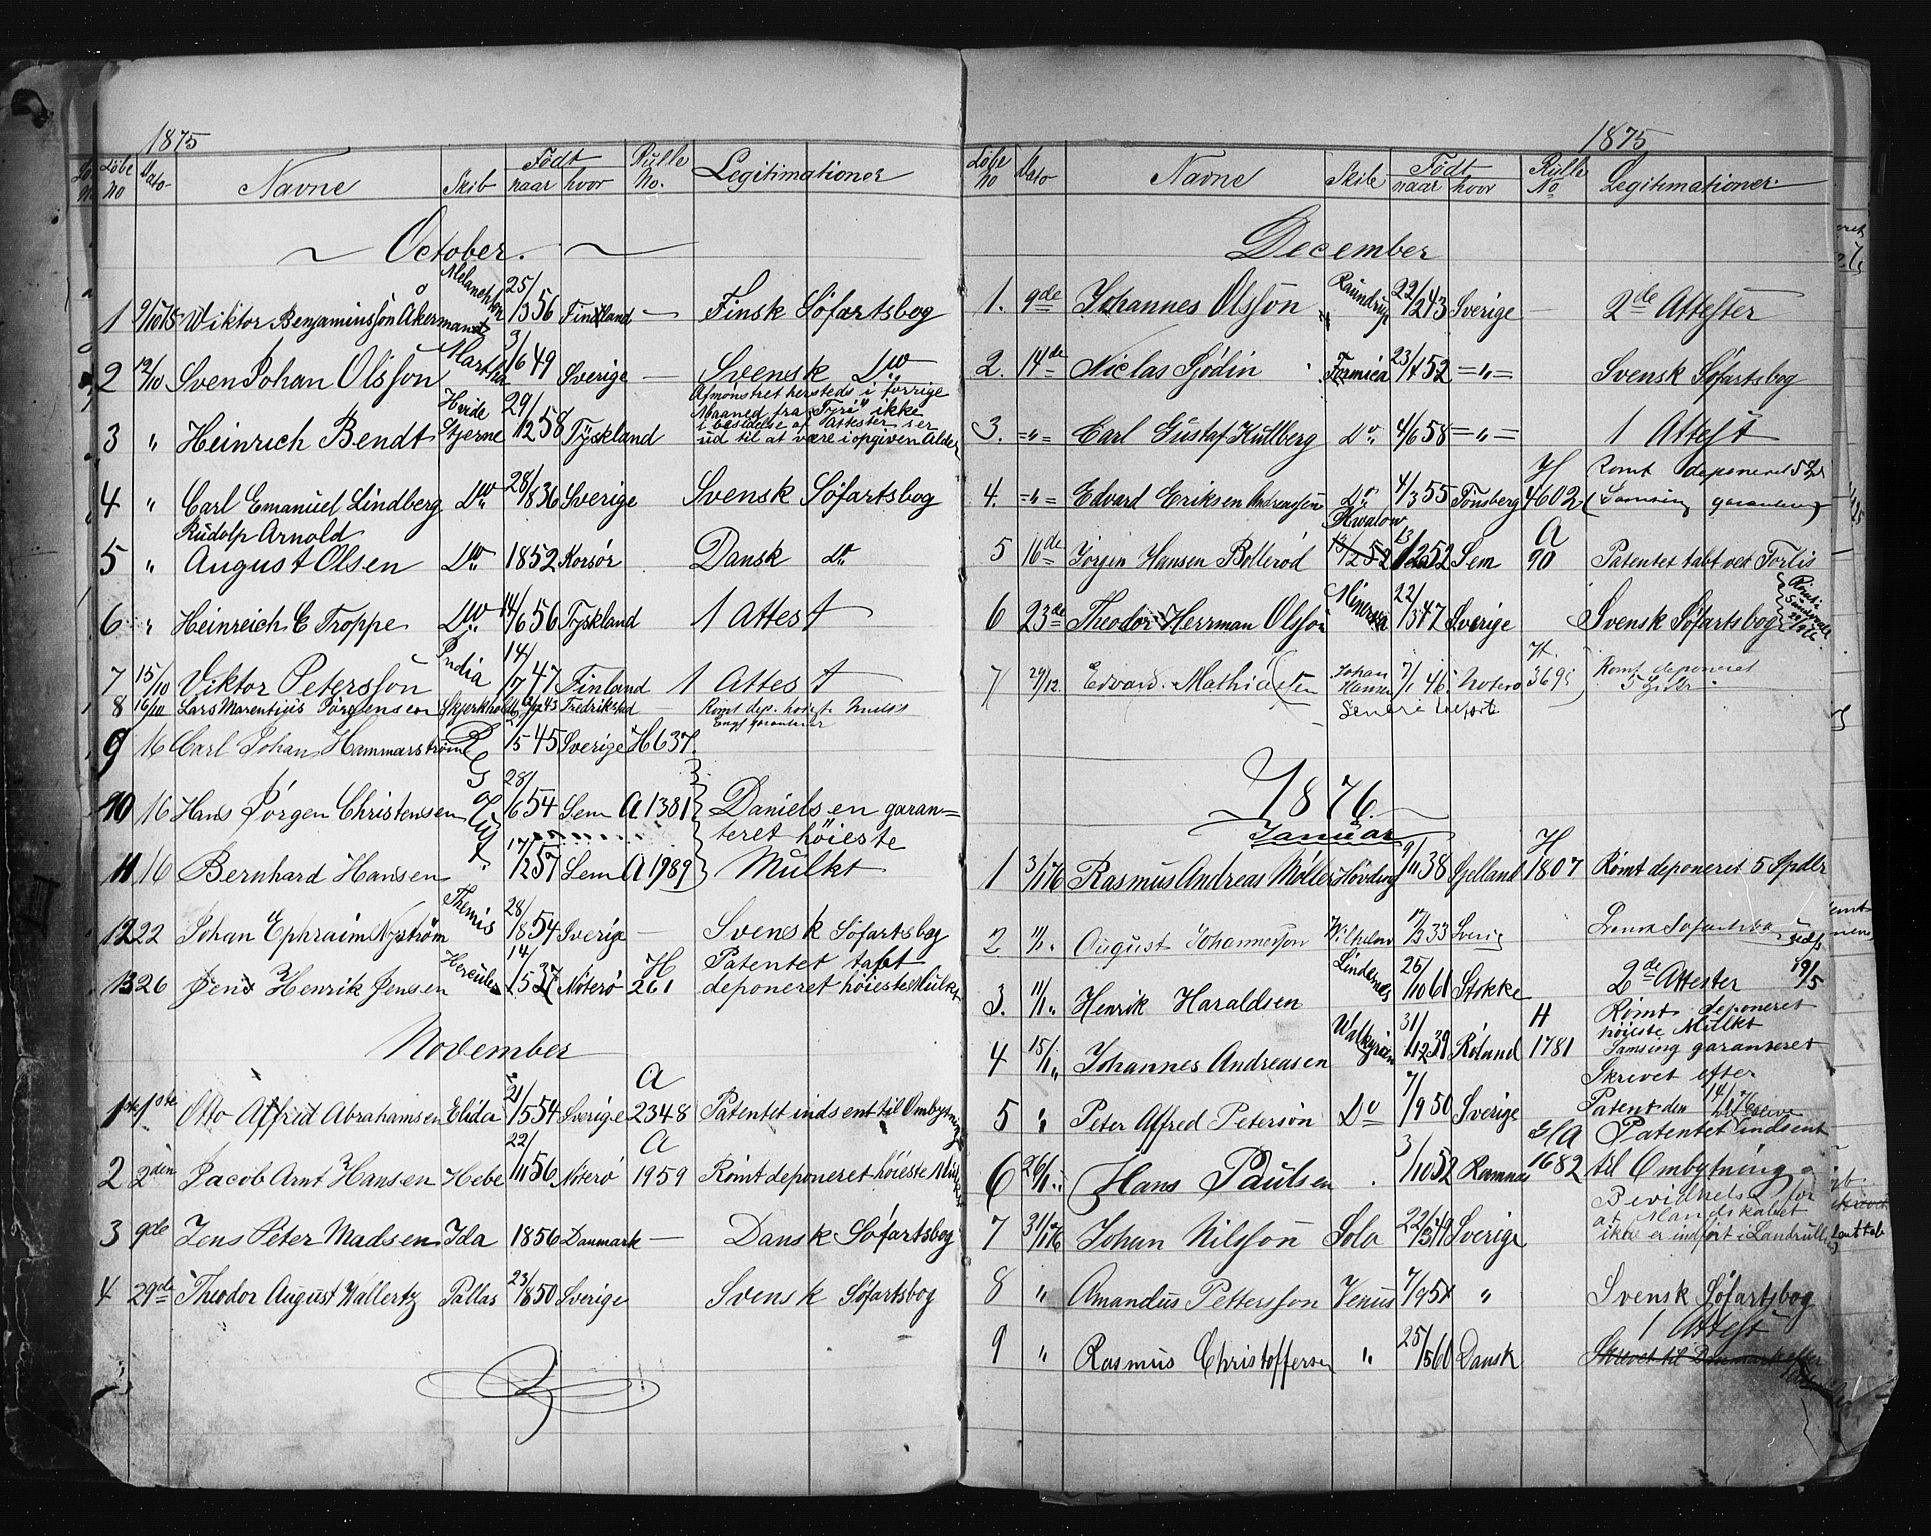 1875
Løbe No Dato Navne Skib Født naar hvor Rulle No. Legitimationer
October.
1 9/10 75 Wiktor Benjaminsson Åkermandt Melanchton 25/3 56 Finland — Finsk Søfartsbog
2 12/10 Sven Johan Olsson Martha 3/6 49 Sverige — Svensk Do
3 " Heinrich Bendt Hvide Stjerne 29/12 58 Tyskland Afmønstret hersteds i forrige
Maaned fra "Fyri" ikke
i besidelse af Attester ser
ud til at være i opgiven Alder
4 " Carl Emanuel Lindberg Do 28/8 36 Sverige Svensk Søfartsbog
Rudolp Arnold
5 " August Olsen Do 1852 Korsør Dansk do
6 " Heinreich E Troppe Do 14/6 56 Tyskland 1 Attest
7 15/10 Viktor Petersson India 14/7 47 Finland 1 Attest
8 16/10 Lars Marentius Jørgensen 43 Fredrikstad Rømt dep.
garanterer
9 16 Carl Johan Hammarstrøm 45 Sverige H 637.
10 16 Hans Jørgen Christensen 28/6 54 Sem A 1381 Danielsen garan=
teret høieste
11 16 Bernhard Hansen 17/2 57 Sem A 1989 Mulkt
12 22 Johan Ephraim Nystrøm Themis 28/8 54 Sverige — Svensk Søfartsbog
13 26 Jens Henrik Jensen Hercules 14/5 37 Nøterø H 261 Patentet tabt
deponeret høieste Mulkt
November
1ste 1ste Otto Alfrid Abrahamsen Elida 21/5 54 Sverige A 2348 Patentet indsent til Ombytning
2 2den Jacob Arnt Hansen Hebe 22/11 56 Nøterø A 1959 Rømt deponeret høieste Mulkt
3 9de Jens Peter Madsen Ida 1856 Danmark — Dansk Søfartsbog
4 29de Theodor August Wallertz Pallas 23/8 50 Sverige Svensk Søfartsbog
1875
Løbe No Dato Navne Skib Født naar hvor Rulle No Legitimationer
December
1. 9de Johannes Olsson Raundrup 22/2 43 Sverige — 2de Attester
2. 14de Niclas Sjödin Formica 23/4 52 =„= Svensk Søfartsbog
3. =„= Carl Gustaf Kullberg Do 4/6 58 =„= 1 Attest
4. =„= Edvard Eriksen Andreassen Do 4/3 55 Tønsberg H 4602 Rømt deponeret 5 Spd
(Samsing garanterer)
5 16de Jørgen Hansen Bollerød Hvalow 13/12 52 Sem A 90 Patentet tabt ved Forlis
6 23de Theodor Herrman Olsson Minerva 22/3 47 Sverige Svensk Søfartsbog
7 29/12. Edvard Mathiasen Johan Hansen 7/1 46 Notero H. 3695 Rømt deponeret
5 Spdlr
Senere
1876.
Januar
1 3/1 76 Rasmus Andreas Møller Høvding 9/11 38 Sjelland H 1807 Rømt deponeret 5 Spdlr
2 11/1. August Johannesson Wilhelm 17/2 33 Sverig Svensk Søfartsbog
3. 11/1 Henrik Haraldsen Lindenæs 26/10 61 Stokke 2de Attester 19/5
4 15/1 Johannes Andreasen Walkyrien 31/12 39 H 1781 Rømt deponeret
høieste Mulkt
Samsing garanteret
5 " Peter Alfred Peterson Do 7/9 50 Sverige Skrevet efter
Patent den 14/1 76
6 26/1 Hans Paulsen . 3/10 52 Ramnæs A 1682 Patentet indsent
til Ombytning
7 31/1 76 Johan Nilsson Sola 22/3 49 Sverige Bevidnelse for
at Mandskabet
ikke er indført i Landrullen
8 " Amandus Pettersson Venus 7/9 54 " Svensk Søfartsbog
9 " Rasmus Christoffersen " 25/5 60 Dansk 1 Attest
Skrevet til Danmark efter